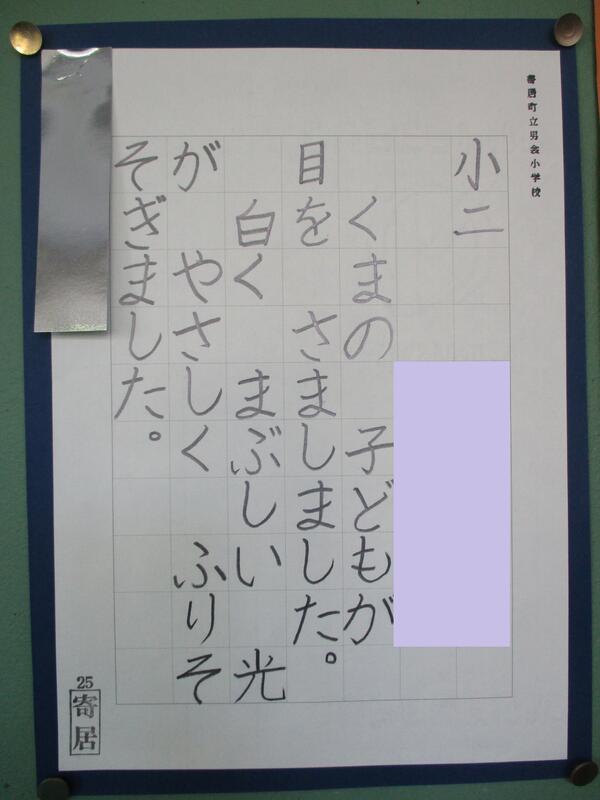 寄居町立男衾小学校
小二
くまの 子どもが
目を さましました。
白く まぶしい 光
が やさしく ふりそ
そぎました。
25
寄居